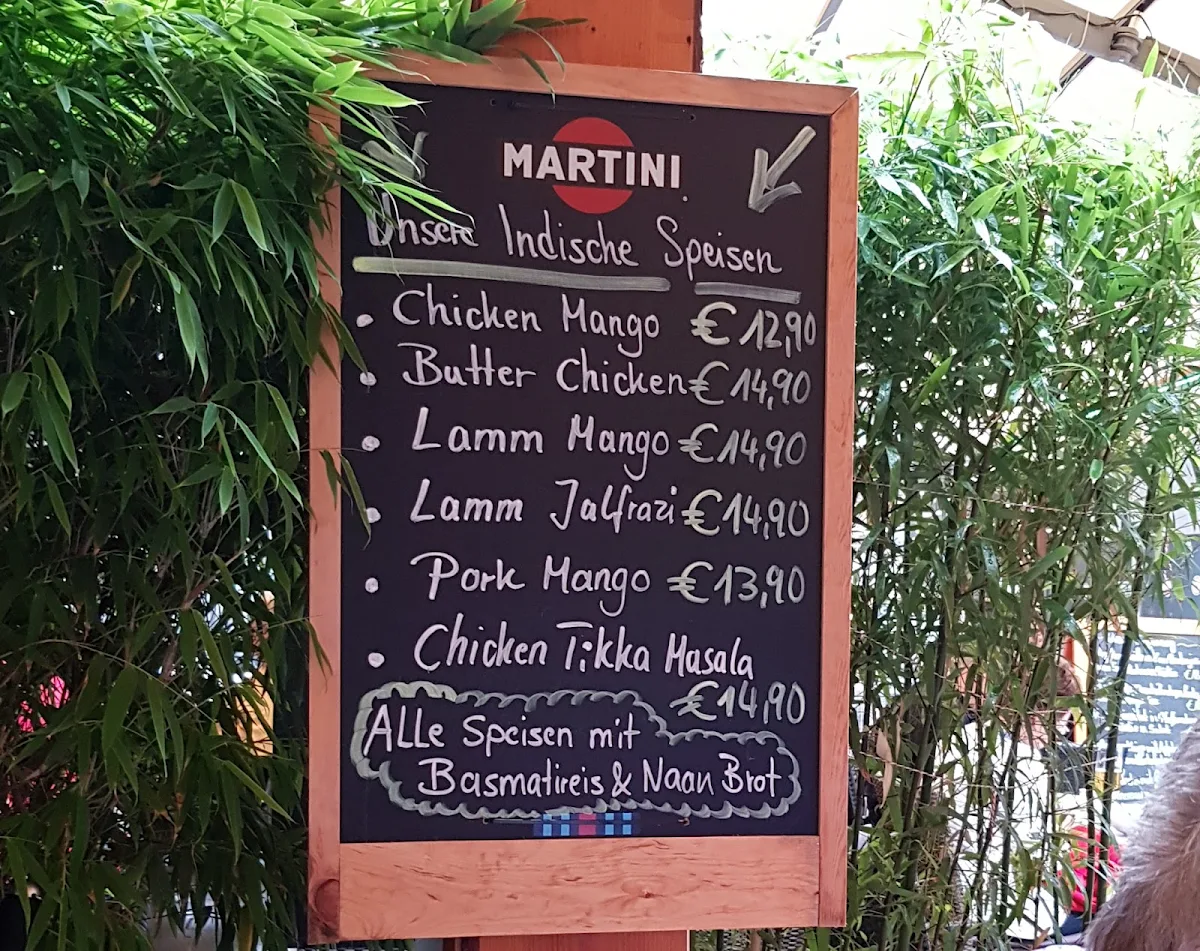 MARTINI
Unsere Indische Speisen
• Chicken Mango €12,90
• Butter Chicken €14,90
• Lamm Mango €14,90
• Lamm Jalfrazi €14,90
• Pork Mango €13,90
• Chicken Tikka Masala
€14,90
ALLe Speisen mit
Basmatireis & Naan Brot